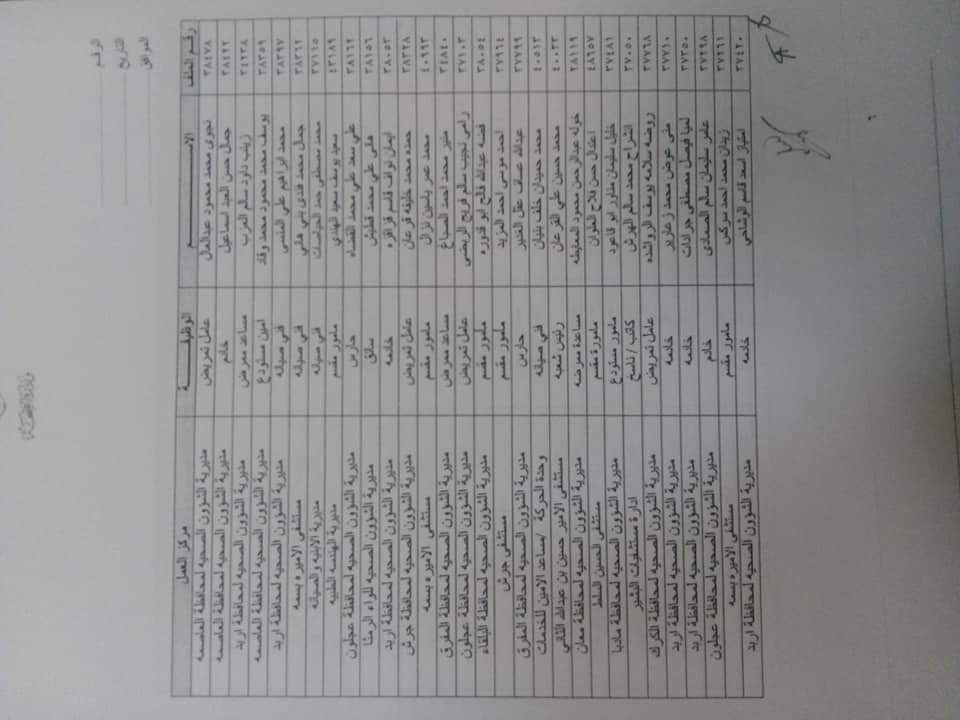 الرقم
التاريخ
الموافق
رقم الملف الاســـــم الوظيفـــة مركز العمل
٣٨٤٧٨ نجوى محمد محمود عبدالعال عامل تمريض مديرية الشؤون الصحيه لمحافظة العاصمه
٣٨٤٢٢ جمال حسن العبد اسماعيل خادم مديرية الشؤون الصحيه لمحافظة العاصمه
٣٤٢٣٨ زينب داود سالم العزب مساعد ممرض مديرية الشؤون الصحيه لمحافظة اربد
٣٨٣٥٩ يوسف محمد محمود محمد وقاد امين مستودع مديرية الشؤون الصحيه لمحافظة العاصمه
٣٨٢٩٧ محمد ابراهيم علي المنسي فني صيانه مديرية الشؤون الصحيه لمحافظة اربد
٣٨٢٦٢ جمال محمد فندي بني هاني فني صيانه مستشفى الاميره بسمه
٣٧١٦٥ محمد مصطفى حمد فني صيانه مديرية الابنيه والصيانه
٤٣١٨٩ سعيد يوسف سعيد الهندي مامور مقسم مديرية الهندسه الطبيه
٣٨١٦٢ علي سعد علي محمد القضاه حارس مديرية الشؤون الصحيه لمحافظة عجلون
٣٨١٥٦ هاني علي محمد قطيش سائق مديرية الشؤون الصحيه للواء الرمثا
٣٨٠٥٣ ايمان نواف قاسم قراقزه خادمه مديرية الشؤون الصحيه لمحافظة اربد
٣٨٢٢٨ حمده محمد خليفه قرعان عامل تمريض مديرية الشؤون الصحيه لمحافظة جرش
٤٠٩٩٣ محمد عمر ياسين نزال مامور مقسم مستشفى الاميره بسمه
٣٤٨٤٠ منير محمد احمد الصباغ مساعد ممرض مديرية الشؤون الصحيه لمحافظة المفرق
٣٧١٠٣ رامي نجيب سالم فريح الربضي عامل تمريض مديرية الشؤون الصحيه لمحافظة عجلون
٣٨٠٥٤ فضه عبدالله فالح ابو قدوره مامور مقسم مديرية الشؤون الصحيه لمحافظة البلقاء
احمد موسى احمد المزيد مامور مقسم مستشفى جرش
٣٧٧٩٩ عبدالله عساف عقل حارس مديرية الشؤون الصحيه لمحافظة المفرق
٤٠٥١٣ محمد حميدان خلف بنيان فني صيانه وحدة الحركة /مساعد الامين للخدمات
٤٠٠٢٣ محمد حسين علي القرعان رئيس شعبه مستشفى الامير حسين بن عبدالله الثاني
٢٨١١٩ خوله عبدالرحمن محمود المعايطه مساعدة ممرضه مديرية الشؤون الصحيه لمحافظة معان
٤٨٩٥٧ اعتدال حسن فلاح العلوان مامورة مقسم مستشفى الحسين السلط
٣٧٤٨١ خليل سليمان مناور ابو قاعود مامور مستودع مديرية الشؤون الصحيه لمحافظة مادبا
٣٧٠٥٠ انشراح محمد سالم الهرش كاتب /ناسخ ادارة مستشفيات البشير
٣٧٧٦٨ روضه سلامه يوسف الرواشده عامل تمريض مديرية الشؤون الصحيه لمحافظة الكرك
٣٧٧١٠ منى عوض محمد زعارير خادمه مديرية الشؤون الصحيه لمحافظة اربد
٣٧٢٥٠ لميا فيصل مصطفى جرادات خادمه مديرية الشؤون الصحيه لمحافظة اربد
٣٧٢٩٨ عامر سليمان سالم الصمادي خادم مديرية الشؤون الصحيه لمحافظة عجلون
٣٧٢٦١ زيدان محمد احمد سركس مامور مقسم مستشفى الاميره بسمه
٣٧٤٢٠ امتياز اسعد قاسم الوشاحي خادمه مديرية الشؤون الصحيه لمحافظة اربد